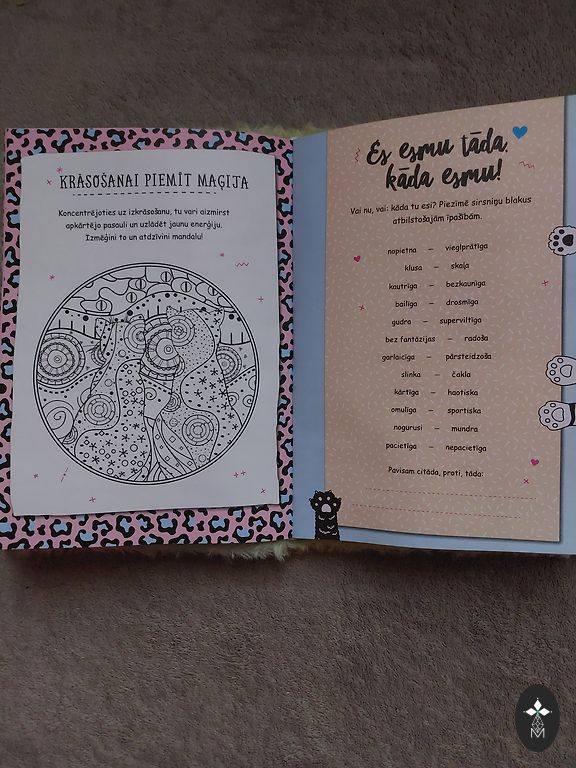 KRĀSOŠANAI PIEMĪT MAĢIJA
Koncentrējoties uz izkrāsošanu, tu vari aizmirst
apkārtējo pasauli un uzlādēt jaunu enerģiju.
Izmēģini to un atdzīvini mandalu!
Es esmu tāda,
kāda esmu!
Vai nu, vai: kāda tu esi? Piezīmē sirsniņu blakus
atbilstošajām īpašībām.
nopietna – vieglprātīga
klusa – skaļa
kautrīga – bezkaunīga
bailīga – drosmīga
gudra – superviltīga
bez fantāzijas – radoša
garlaicīga – pārsteidzoša
slinka – čakla
kārtīga – haotiska
omulīga – sportiska
nogurusi – mundra
pacietīga – nepacietīga
Pavisam citāda, proti, tāda:
M